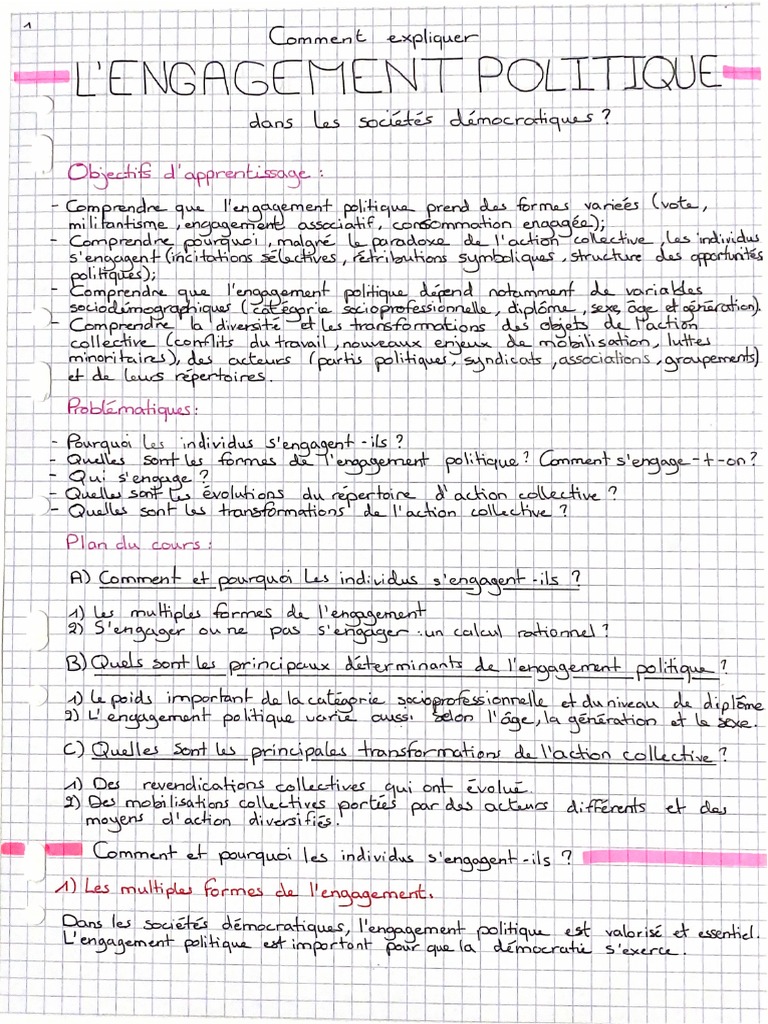 1
Comment expliquer
L'ENGAGEMENT POLITIQUE
dans les sociétés démocratiques ?
Objectifs d'apprentissage :
- Comprendre que l'engagement politique prend des formes variées (vote,
militantisme, engagement associatif, consommation engagée);
- Comprendre pourquoi, malgré le paradoxe de l'action collective, les individus
s'engagent (incitations sélectives, rétributions symboliques, structure des opportunités
politiques);
- Comprendre que l'engagement politique dépend notamment de variables
sociodémographiques (catégorie socioprofessionnelle, diplôme, sexe, âge et génération).
- Comprendre la diversité et les transformations des objets de l'action
collective (conflits du travail, nouveaux enjeux de mobilisation, luttes
minoritaires), des acteurs (partis politiques, syndicats, associations, groupements)
et de leurs répertoires.
Problématiques :
- Pourquoi les individus s'engagent-ils ?
- Quelles sont les formes de l'engagement politique ? Comment s'engage-t-on ?
- Qui s'engage ?
- Quelles sont les évolutions du répertoire d'action collective ?
- Quelles sont les transformations de l'action collective ?
Plan du cours :
A) Comment et pourquoi les individus s'engagent-ils ?
1) Les multiples formes de l'engagement
2) S'engager ou ne pas s'engager : un calcul rationnel ?
B) Quels sont les principaux déterminants de l'engagement politique ?
1) Le poids important de la catégorie socioprofessionnelle et du niveau de diplôme
2) L'engagement politique varie aussi selon l'âge, la génération et le sexe.
C) Quelles sont les principales transformations de l'action collective ?
1) Des revendications collectives qui ont évolué.
2) Des mobilisations collectives portées par des acteurs différents et des
moyens d'action diversifiés.
Comment et pourquoi les individus s'engagent-ils ?
1) Les multiples formes de l'engagement.
Dans les sociétés démocratiques, l'engagement politique est valorisé et essentiel.
L'engagement politique est important pour que la démocratie s'exerce.